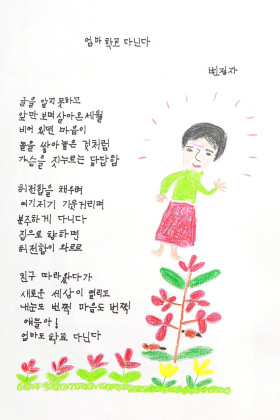 엄마 학교 다닌다
번정자
글을 알지 못하고
앞만 보며 살아온 세월
비어 있던 마음이
돌을 쌓아 놓은 것처럼
가슴을 짓누르는 답답함
허전함을 채우려
여기저기 기웃거리며
분주하게 다니다
집으로 향하면
허전함이 와르르
친구 따라 왔다가
새로운 세상이 열리고
내눈도 번쩍 마음도 번쩍
얘들아!
엄마도 학교 다닌다